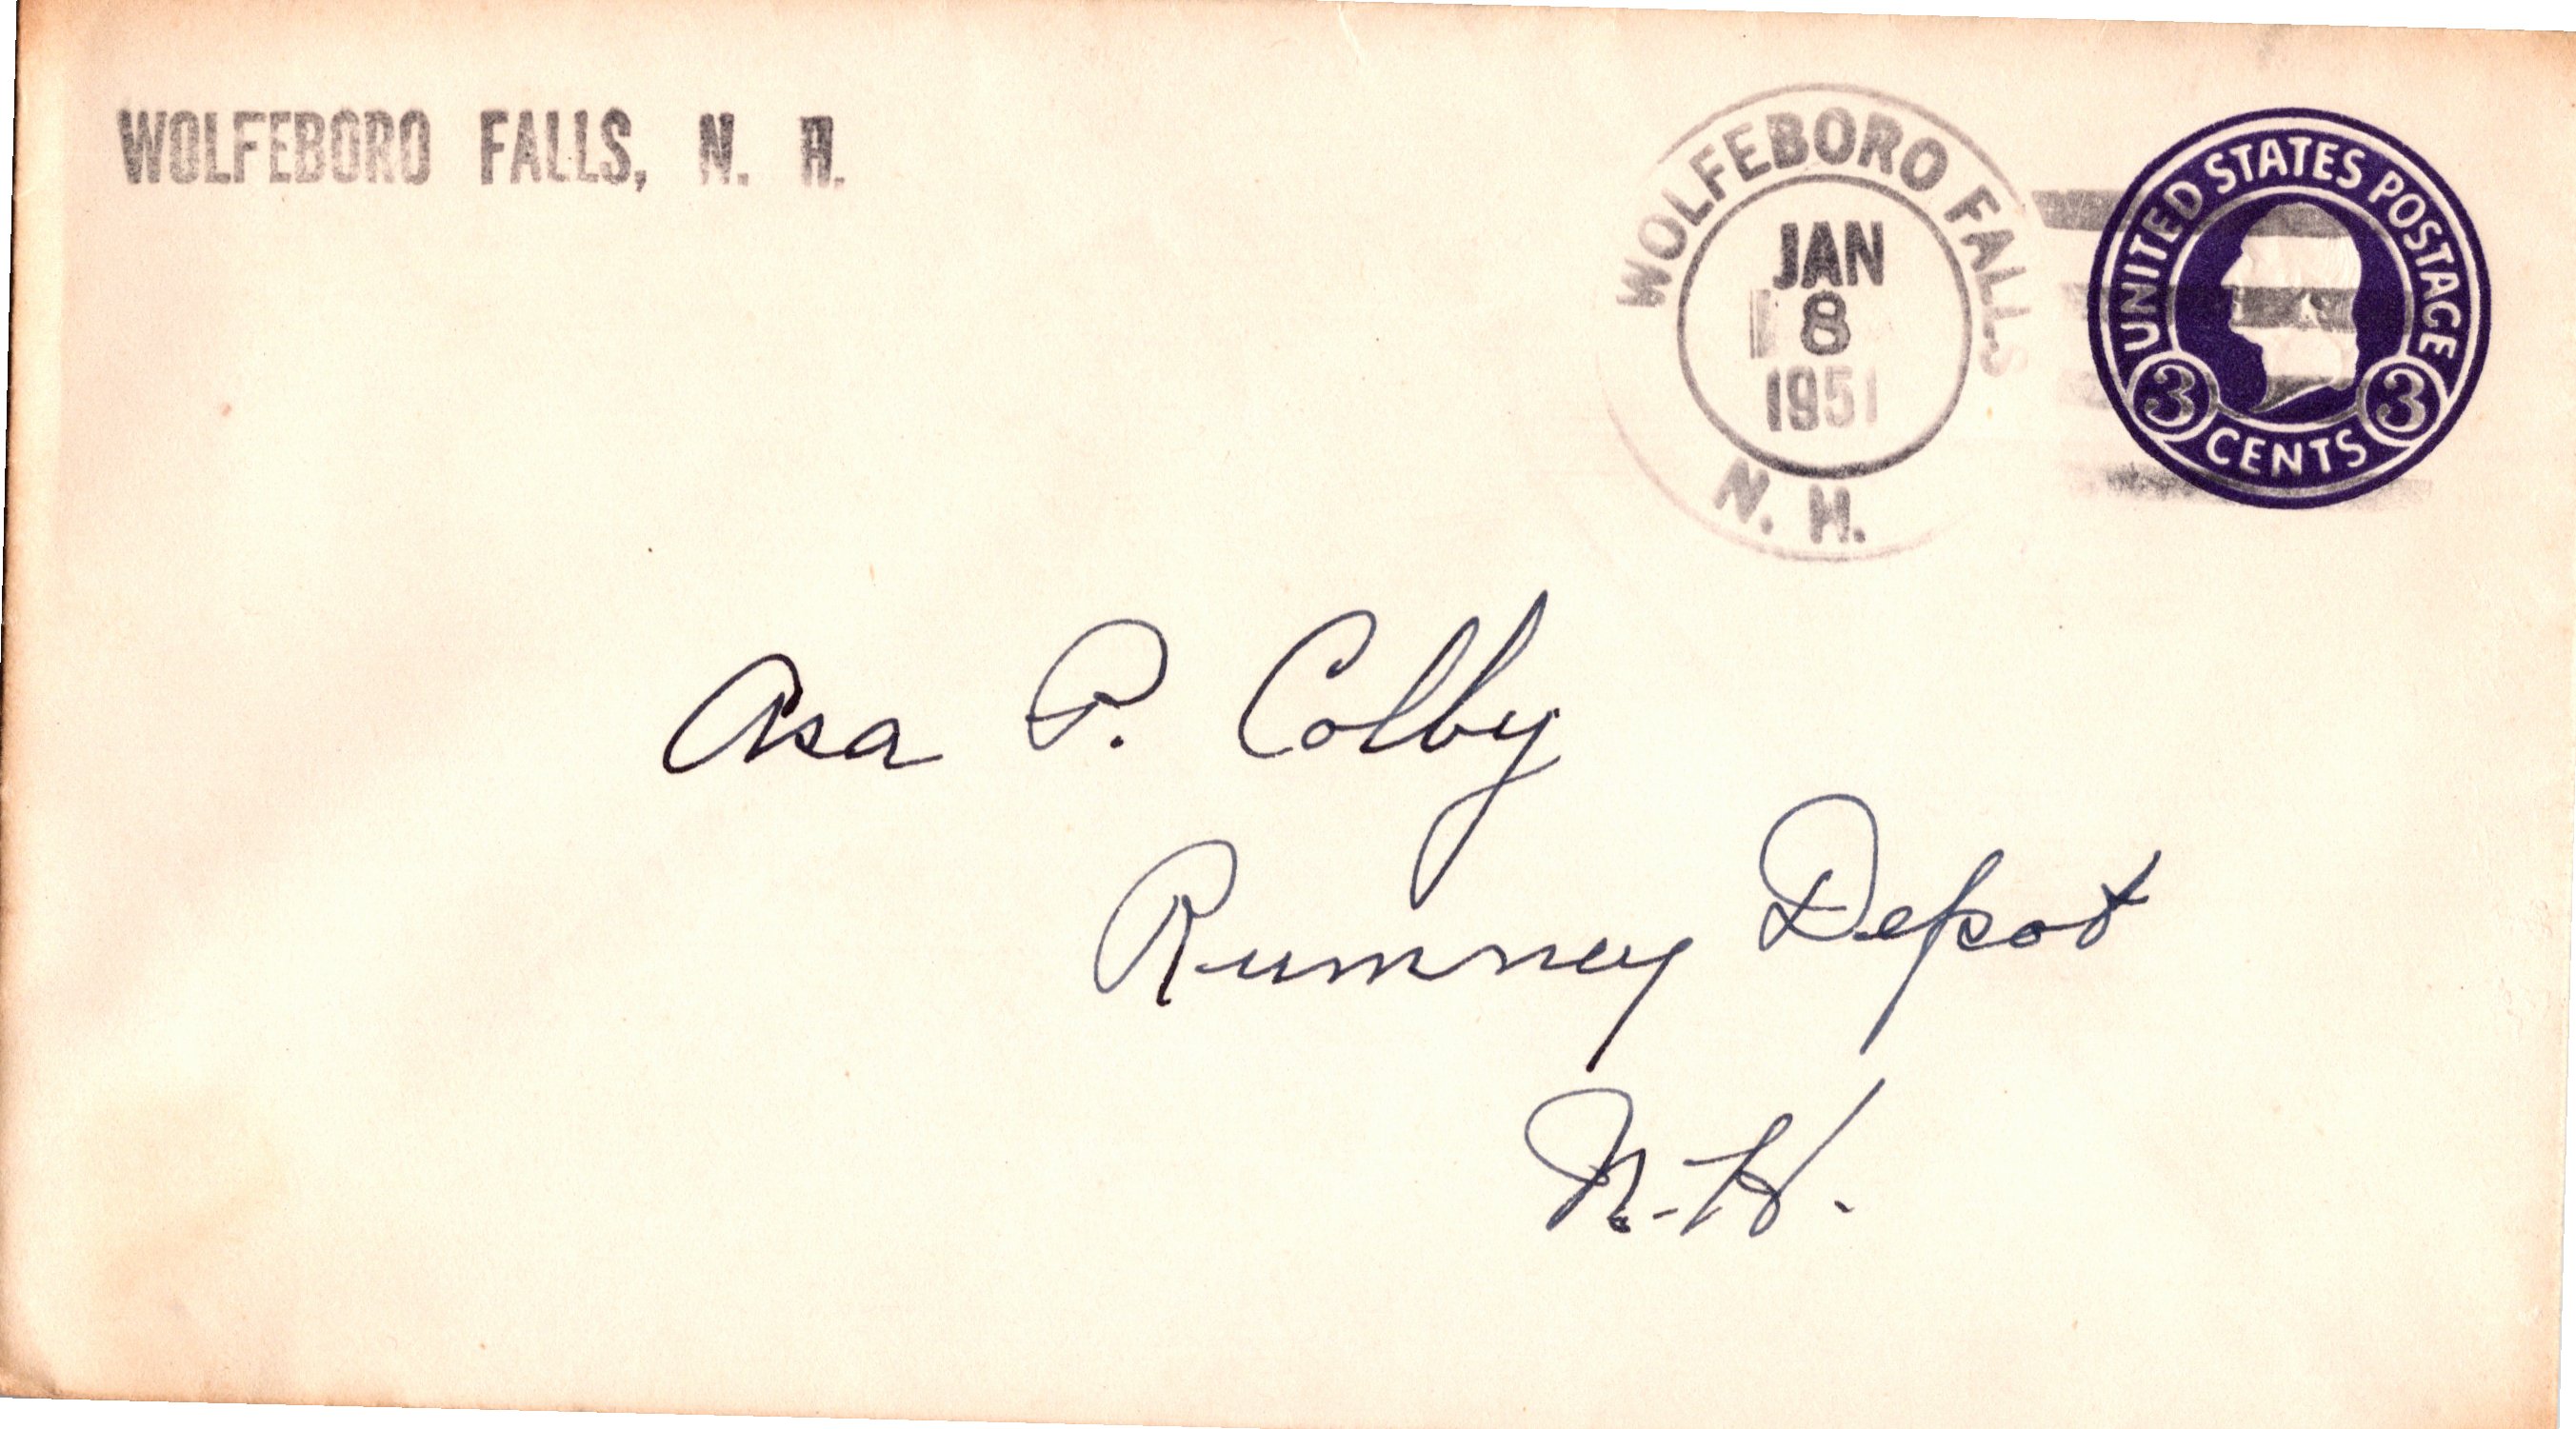 WOLFEBORO FALLS, N. H.
WOLFEBORO FALLS
JAN
8
1951
N. H.
UNITED STATES POSTAGE
3 3
CENTS
Asa P. Colby
Rumney Depot
N.H.